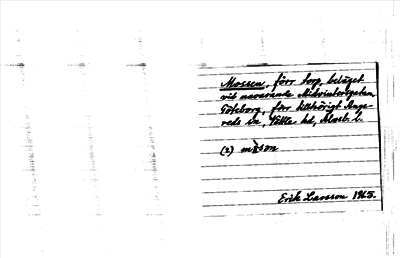 Mossen, förr torp, beläget
vid nuvarande Midvintersgatan,
Göteborg, förr tillhörigt Ange-
reds sn, Vättle hd, Älvsb. l.
(2) måson
Erik Larsson 1965.